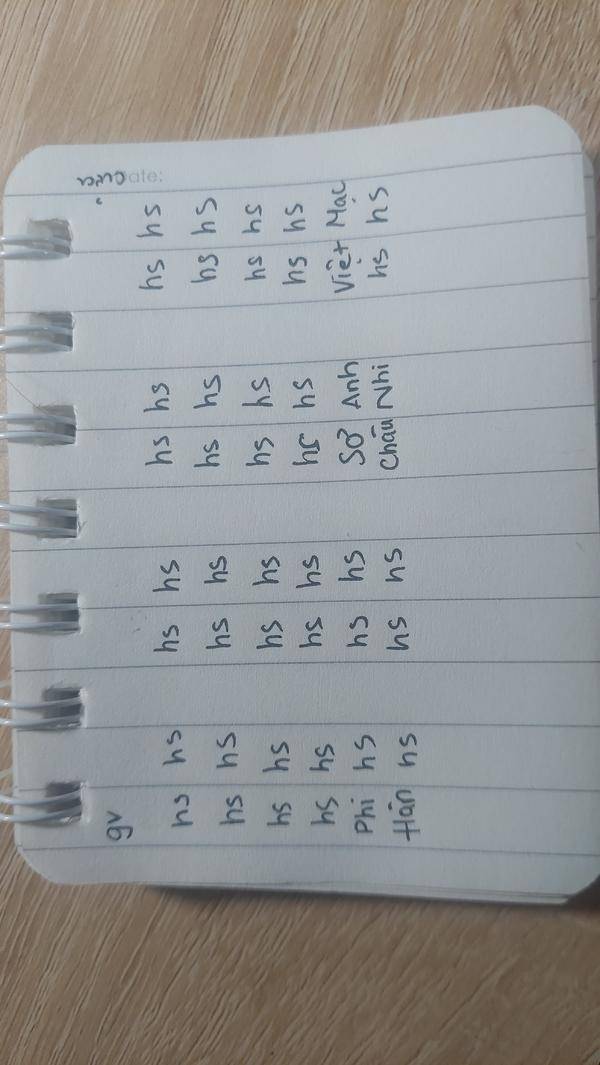 gv cửa
hs hs hs hs hs hs hs hs
hs hs hs hs hs hs hs hs
hs hs hs hs hs hs hs hs
hs hs hs hs hs hs hs hs
Phi hs hs hs Sơ Anh Việt Mạc
Hân hs hs hs Châu Nhi hs hs
ate: